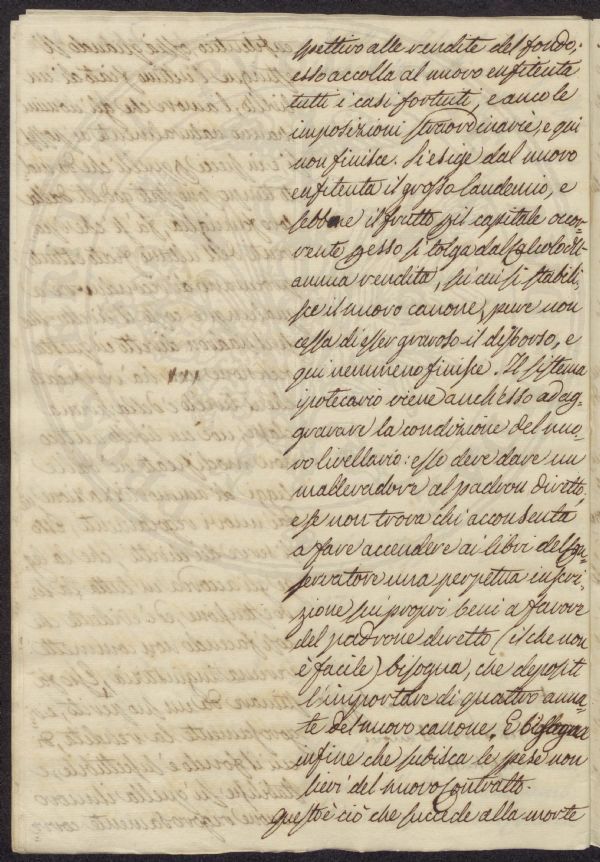 spettivo alle vendite del fondo;
esso accolla al nuovo enfiteuta
tutti i casi fortuiti, e anco le
imposizioni straordinarie, e qui
non finisce. Si esige dal nuovo
enfiteuta il grosso laudemio, e
sebbene il frutto pil capitale occor-
rente pesso si tolga dal Calcolo dell'
annua rendita, su cui si stabili-
sce il nuovo canone, pure non
cessa di esser gravoso il disborso, e
qui nemmeno finisce. Il sistema
ipotecario viene anch'esso ad ag-
gravare la condizione del nuo-
vo livellario: esso deve dare un
mallevadore al padron diretto,
e se non trova chi acconsenta
a fare accendere ai libri del Con-
servatore una perpetua inscri-
zione sui propri beni a favore
del padrone diretto (il che non
è facile) bisogna, che depositi
l'importare di quattro anna-
te del nuovo canone. E bisogna
infine che subisca le spese non
lievi del nuovo Contratto.
Questo è ciò che succede alla morte